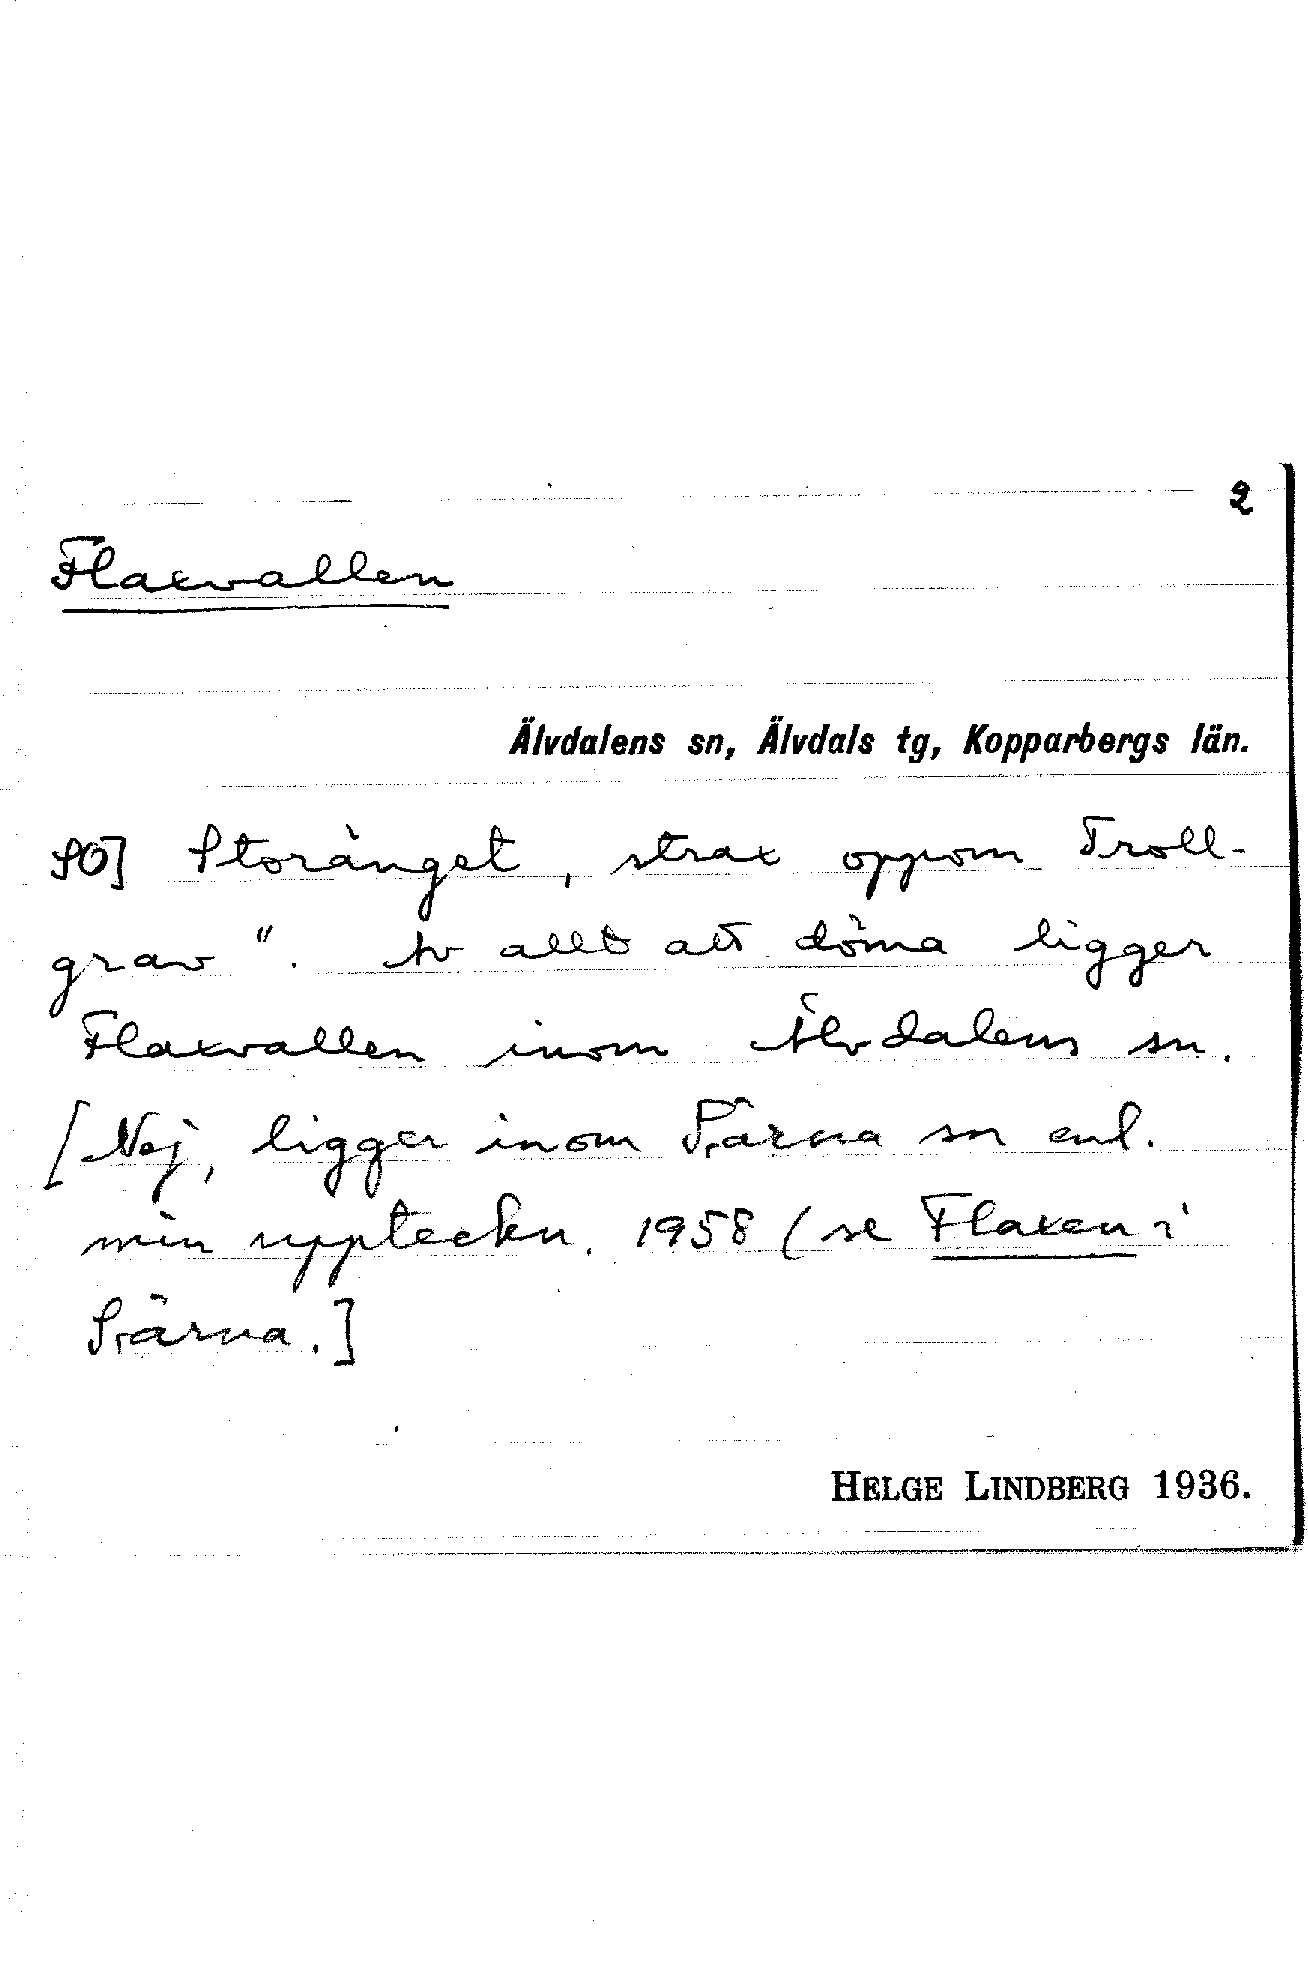 2
Flaxvallen
Älvdalens sn, Älvdals tg, Kopparbergs län.
SO] Storänget, strax oppom Troll-
grav". Av allt att döma ligger
Flaxvallen inom Älvdalens sn.
[Nej, ligger inom Särna sn enl.
min uppteckn. 1958 (se Flaxen i
Särna.]
HELGE LINDBERG 1936.